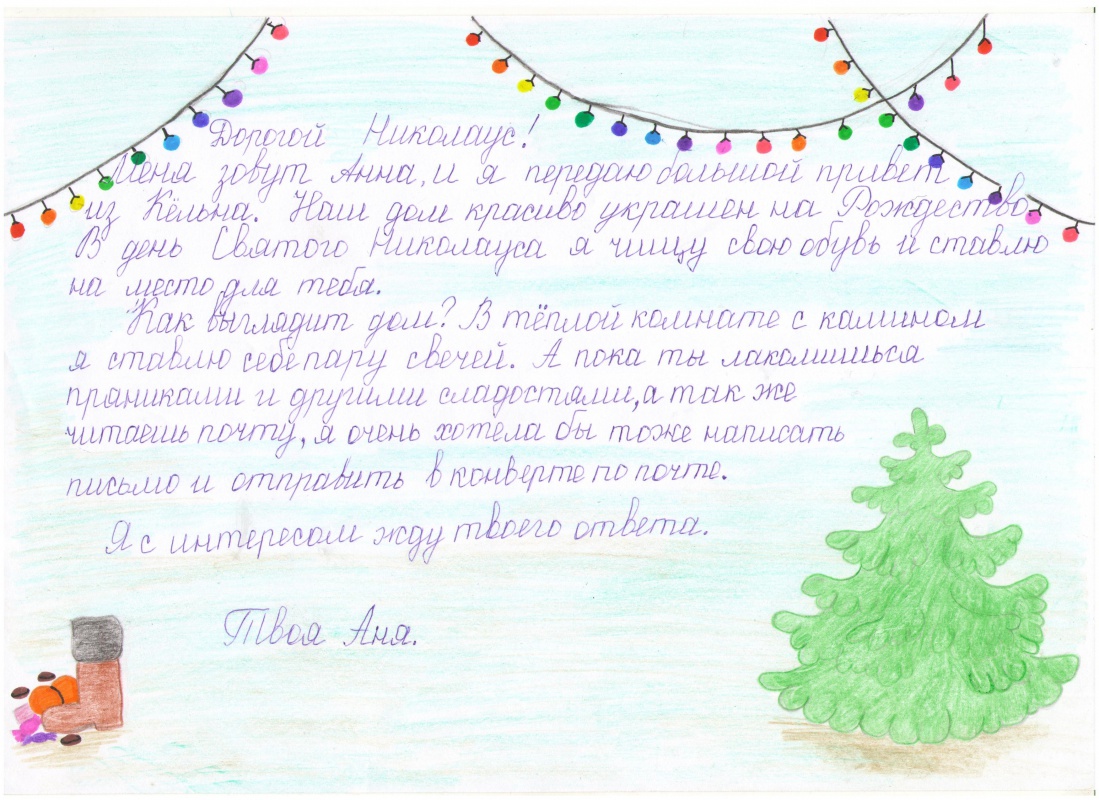 Дорогой Николаус!
Меня зовут Анна, и я передаю большой привет
из Кёльна. Наш дом красиво украшен на Рождество.
В день Святого Николауса я чищу свою обувь и ставлю
на место для тебя.
Как выглядит дом? В тёплой комнате с камином
я ставлю себе пару свечей. А пока ты лакомишься
пряниками и другими сладостями, а так же
читаешь почту, я очень хотела бы тоже написать
письмо и отправить в конверте по почте.
Я с интересом жду твоего ответа.
Твоя Аня.